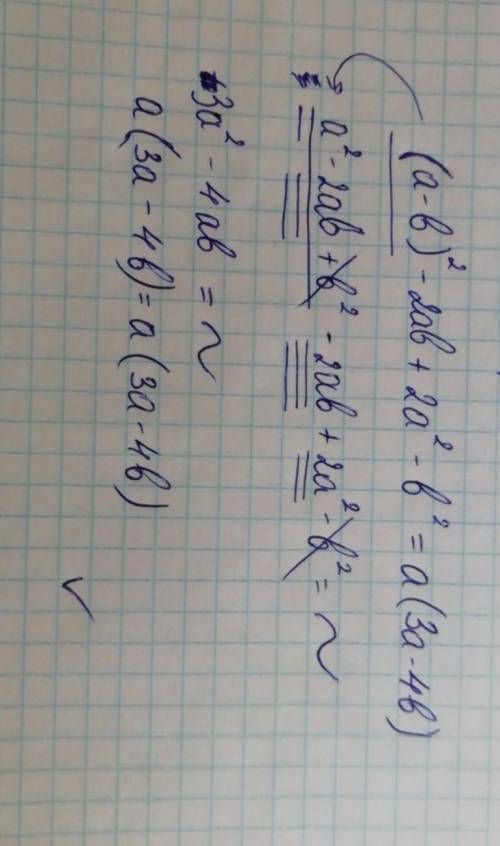 (a-b)² - 2ab + 2a² - b² = a(3a-4b)
a² - 2ab + b² - 2ab + 2a² - b² = ~
3a² - 4ab = ~
a(3a - 4b) = a(3a-4b)
✓